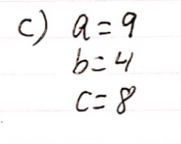 c) a = 9
b = 4
c = 8